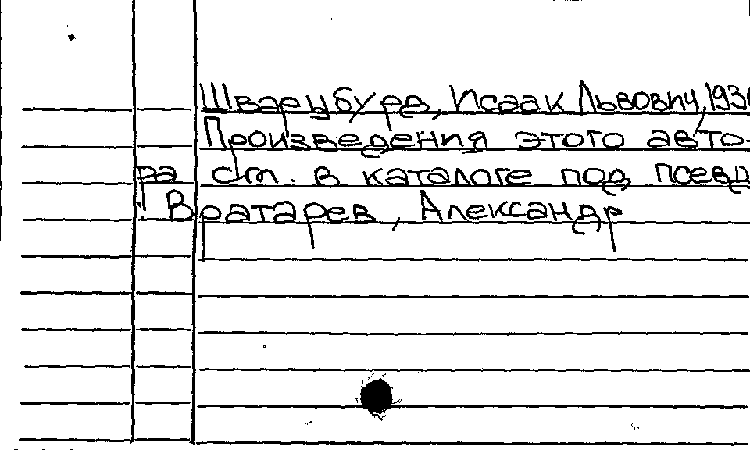 Шварцбурд, Исаак Львович, 193
Произведения этого авто-
ра см. в каталоге под псевд
: Вратарев, Александр